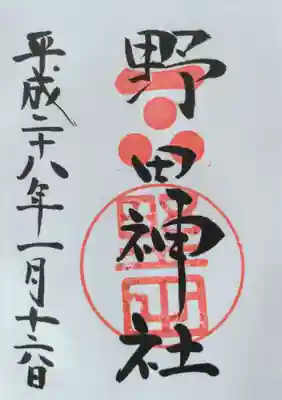 野田神社
平成二十八年一月十六日